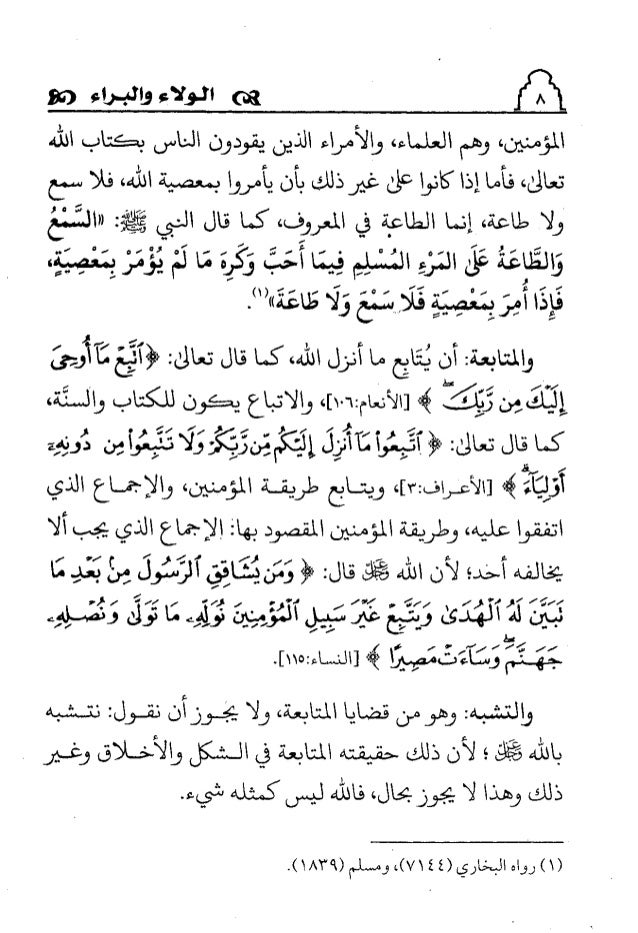 ٨
الولاء والبراء
المؤمنين، وهم العلماء، والأمراء الذين يقودون الناس بكتاب الله
تعالىٰ، فأما إذا كانوا علىٰ غير ذلك بأن يأمروا بمعصية الله، فلا سمع
ولا طاعة، إنما الطاعة في المعروف، كما قال النبي ﷺ: «السَّمْعُ
وَالطَّاعَةُ عَلَى المَرْءِ المُسْلِمِ فِيمَا أَحَبَّ وَكَرِهَ مَا لَمْ يُؤْمَرْ بِمَعْصِيَةٍ،
فَإِذَا أُمِرَ بِمَعْصِيَةٍ فَلَا سَمْعَ وَلَا طَاعَةَ»(١).
والمتابعة: أن يُتَابِع ما أنزل الله، كما قال تعالىٰ: ﴿ ٱتَّبِعْ مَآ أُوحِىَ
إِلَيْكَ مِن رَّبِّكَ ۖ ﴾ [الأنعام:١٠٦]، والاتباع يكون للكتاب والسنَّة،
كما قال تعالىٰ: ﴿ ٱتَّبِعُوا۟ مَآ أُنزِلَ إِلَيْكُم مِّن رَّبِّكُمْ وَلَا تَتَّبِعُوا۟ مِن دُونِهِۦٓ
أَوْلِيَآءَ ۗ ﴾ [الأعراف:٣]، ويتابع طريقة المؤمنين، والإجماع الذي
اتفقوا عليه، وطريقة المؤمنين المقصود بها: الإجماع الذي يجب ألا
يخالفه أحد؛ لأن الله ﷻ قال: ﴿ وَمَن يُشَاقِقِ ٱلرَّسُولَ مِنۢ بَعْدِ مَا
تَبَيَّنَ لَهُ ٱلْهُدَىٰ وَيَتَّبِعْ غَيْرَ سَبِيلِ ٱلْمُؤْمِنِينَ نُوَلِّهِۦ مَا تَوَلَّىٰ وَنُصْلِهِۦ
جَهَنَّمَ ۖ وَسَآءَتْ مَصِيرًا ﴾ [النساء:١١٥].
والتشبه: وهو من قضايا المتابعة، ولا يجوز أن نقول: نتشبه
بالله ﷻ؛ لأن ذلك حقيقته المتابعة في الشكل والأخلاق وغير
ذلك وهذا لا يجوز بحال، فالله ليس كمثله شيء.
(١) رواه البخاري (٧١٤٤)، ومسلم (١٨٣٩).